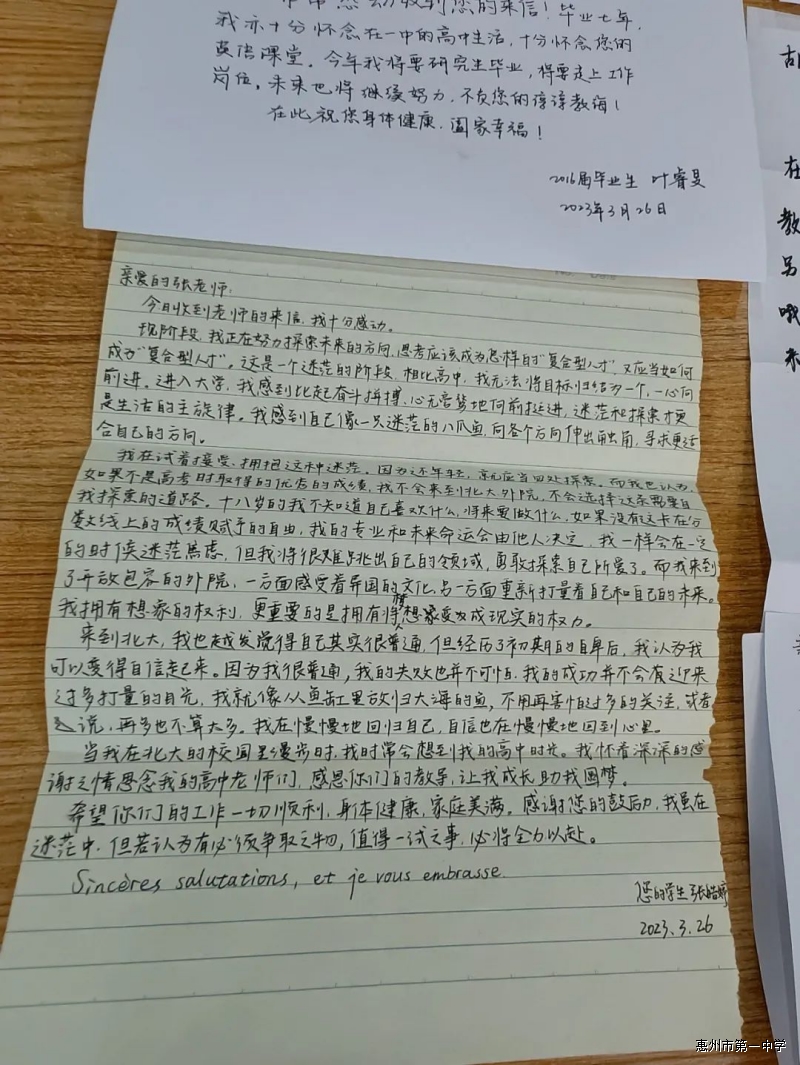 非常感动收到您的来信！毕业七年，
我亦十分怀念在一中的高中生活，十分怀念您的
英语课堂。今年我将要研究生毕业，将要走上工作
岗位，未来也将继续努力，不负您的谆谆教诲！
在此，祝您身体健康，阖家幸福！
2016届毕业生 叶睿旻
2023年3月26日
亲爱的张老师：
今日收到老师的来信，我十分感动。
现阶段，我正在努力探索未来的方向，思考应该成为怎样的"复合型人才"，又应当如何
成为"复合型人才"。这是一个迷茫的阶段，相比高中，我无法将目标归结为一个，一心向
前进。进入大学，我感到比起奋斗拼搏、心无旁骛地向前挺进，迷茫和探索才更
是生活的主旋律。我感到自己像一只迷茫的八爪鱼，向各个方向伸出触角，寻求更适
合自己的方向。
我在试着接受、拥抱这种迷茫。因为还年轻，就应当四处探索。而我也认为，
如果不是高考时取得的优秀的成绩，我不会来到北大外院，不会选择这条需要自
我探索的道路。十八岁的我不知道自己喜欢什么，将来要做什么，如果没有这卡在分
数线上的成绩赋予的自由，我的专业和未来命运会由他人决定，我一样会在一定
的时候迷茫焦虑，但我将很难跳出自己的领域，勇敢探索自己所爱了。而我来到
了开放包容的外院，一方面感受着异国的文化，另一方面重新打量着自己和自己的未来。
我拥有想象的权利，更重要的是拥有将梦想变成现实的权力。
来到北大，我也越发觉得自己其实很普通，但经历了初期的自卑后，我认为我
可以变得自信起来。因为我很普通，我的失败也并不可怕，我的成功并不会有迎来
过多打量的目光，我就像从鱼缸里放归大海的鱼，不用再害怕过多的关注，或者
说，再多也不算太多。我在慢慢地回归自己，自信也在慢慢地回到心里。
当我在北大的校园里漫步时，我时常会想到我的高中时光。我怀着深深的感
谢之情思念我的高中老师们，感恩你们的教导，让我成长，助我圆梦。
希望你们的工作一切顺利，身体健康，家庭美满。感谢您的鼓励，我虽在
迷茫中，但若认为有必须争取之物，值得一试之事，必将全力以赴。
Sincères salutations, et je vous embrasse.
您的学生 张皓婷
2023.3.26
胡
在
教
另
哦
来
惠州市第一中学